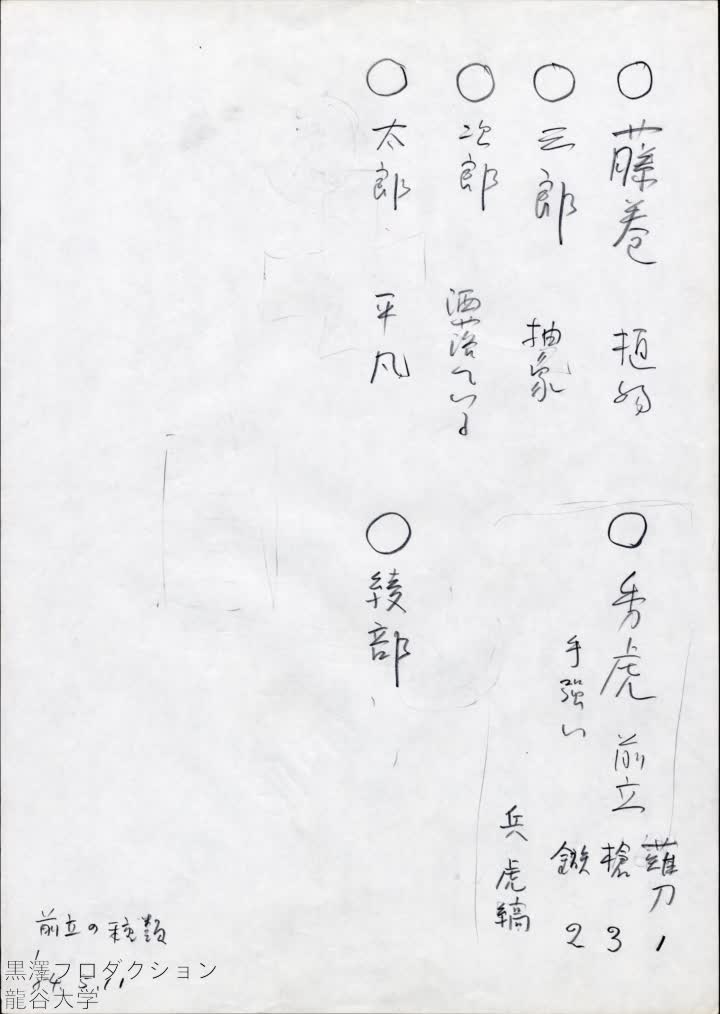 ○藤巻 植物
○三郎 抽象
○次郎 洒落ている
○太郎 平凡
○秀虎 前立
手強い
薙刀 1
槍 3
鏃 2
兵虎
○綾部
前立の種類
'84.5.11
黒澤プロダクション
龍谷大学